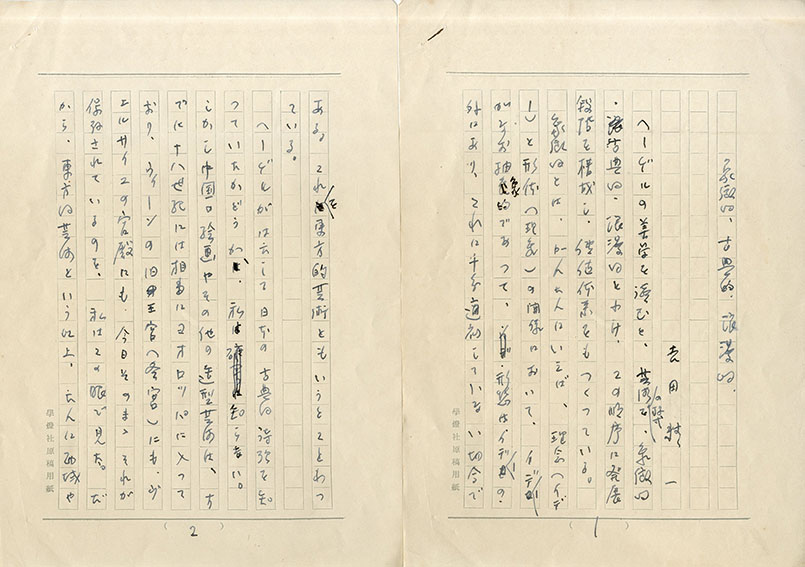 象徴的、古典的、浪漫的、
吉田精一
ヘーゲルの美学を読むと、芸術の発展を、象徴的
・古典的・浪漫的とわけ、この順序に発展
段階を構成し、価値体系をもつくっている。
象徴的とは、かんたんにいえば、理念(イデ
ー)と形体(現象)の関係において、イデー
がなお抽象的であつて、形態はイデーの
外にあり、それに十分適初していない場合で
1
學燈社原稿用紙
ある。これを東方的芸術ともいうとことわつ
ている。
ヘーゲルがはたして日本の古典的詩歌を知
つていたかどうか、私は知らない。
しかし中国の絵画やその他の造型芸術は、す
でに十八世紀には相当にヨオロッパに入つて
おり、ウィーンの旧王宮(冬宮)にも、ヴ
エルサイユの宮殿にも、今日そのまゝそれが
保存されているのを、私はこの眼で見た。だ
から、東方的芸術という以上、たんに西域や
2
學燈社原稿用紙